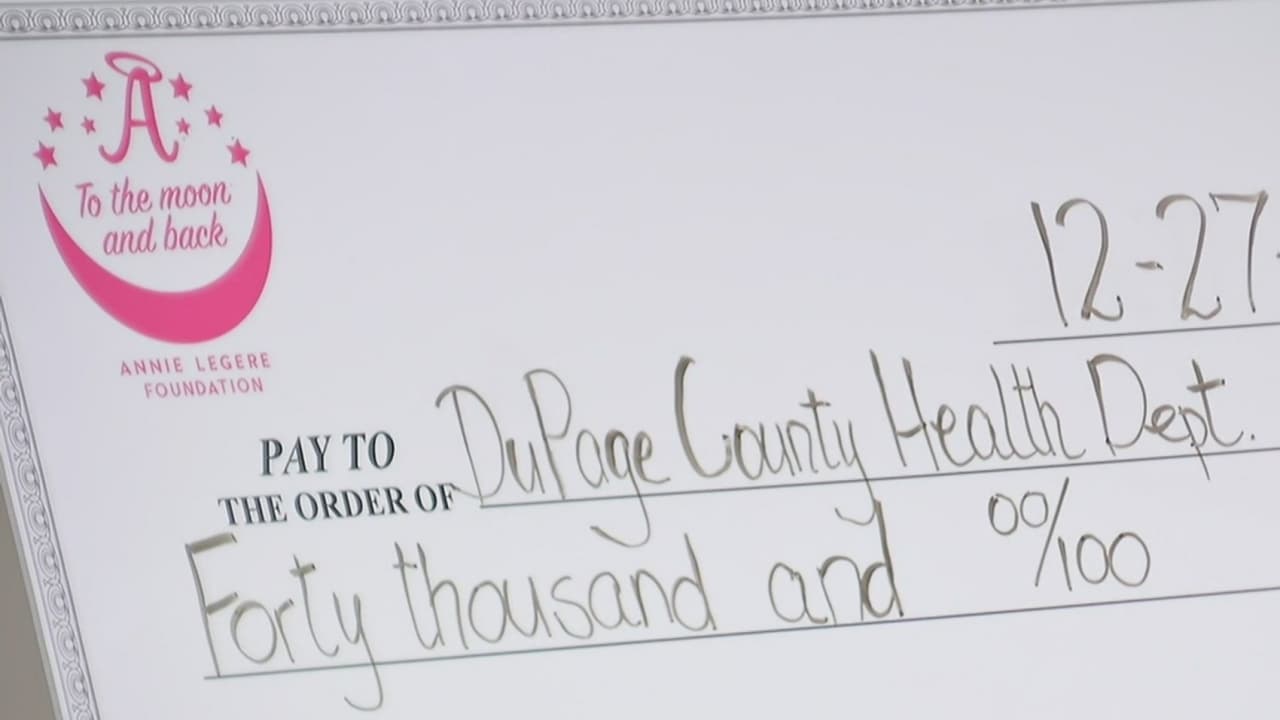 A
To the moon
and back
ANNIE LEGERE
FOUNDATION
12-27-
PAY TO
THE ORDER OF DuPage County Health Dept.
Forty thousand and 00/100